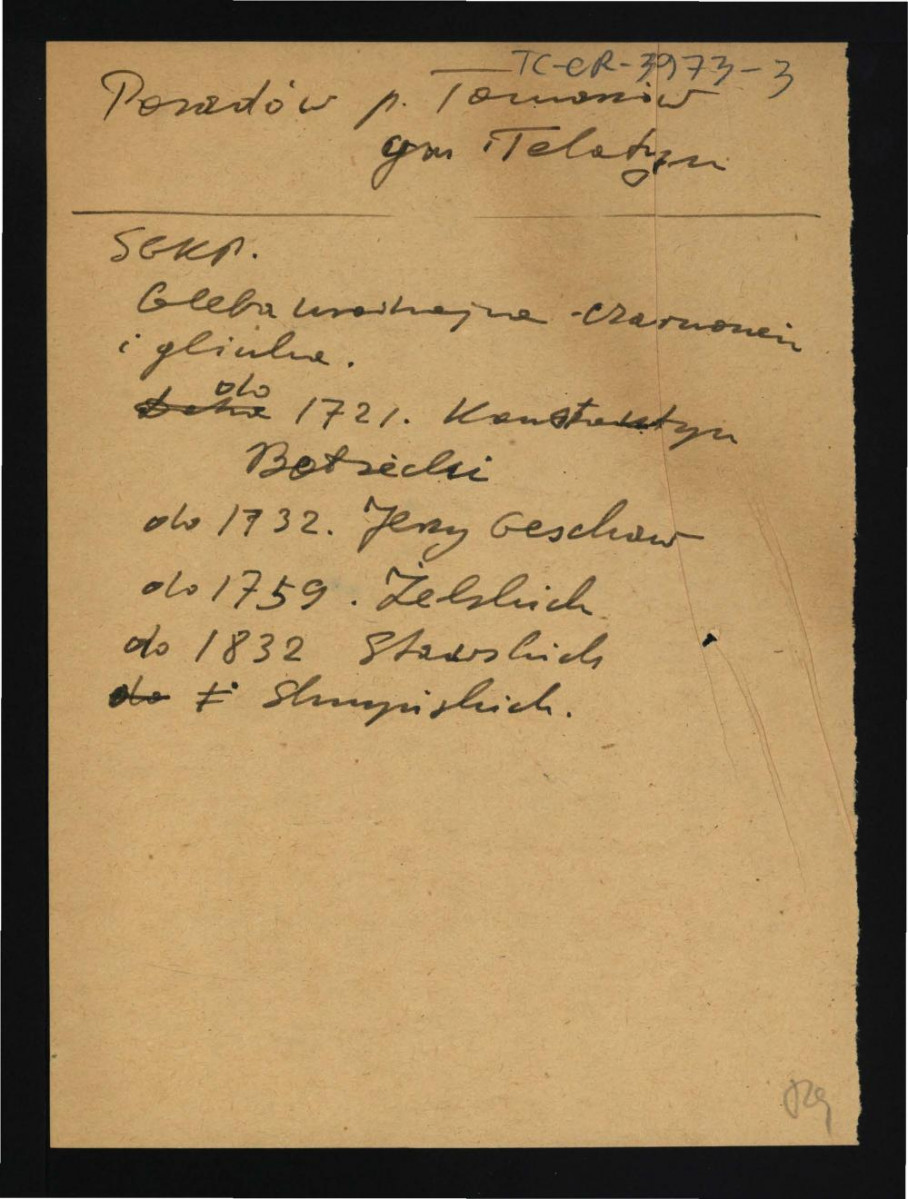 TC-CR-3973-3
Posadów p. Tomaszów
gm Telatyn
SGKP.
Gleba urodzajna - czarnoziem
i glinka.
do 1721. Konstantyn
do 1732. Jerzy Geschaw
do 1759. Żelskich
do 1832 Stawskich